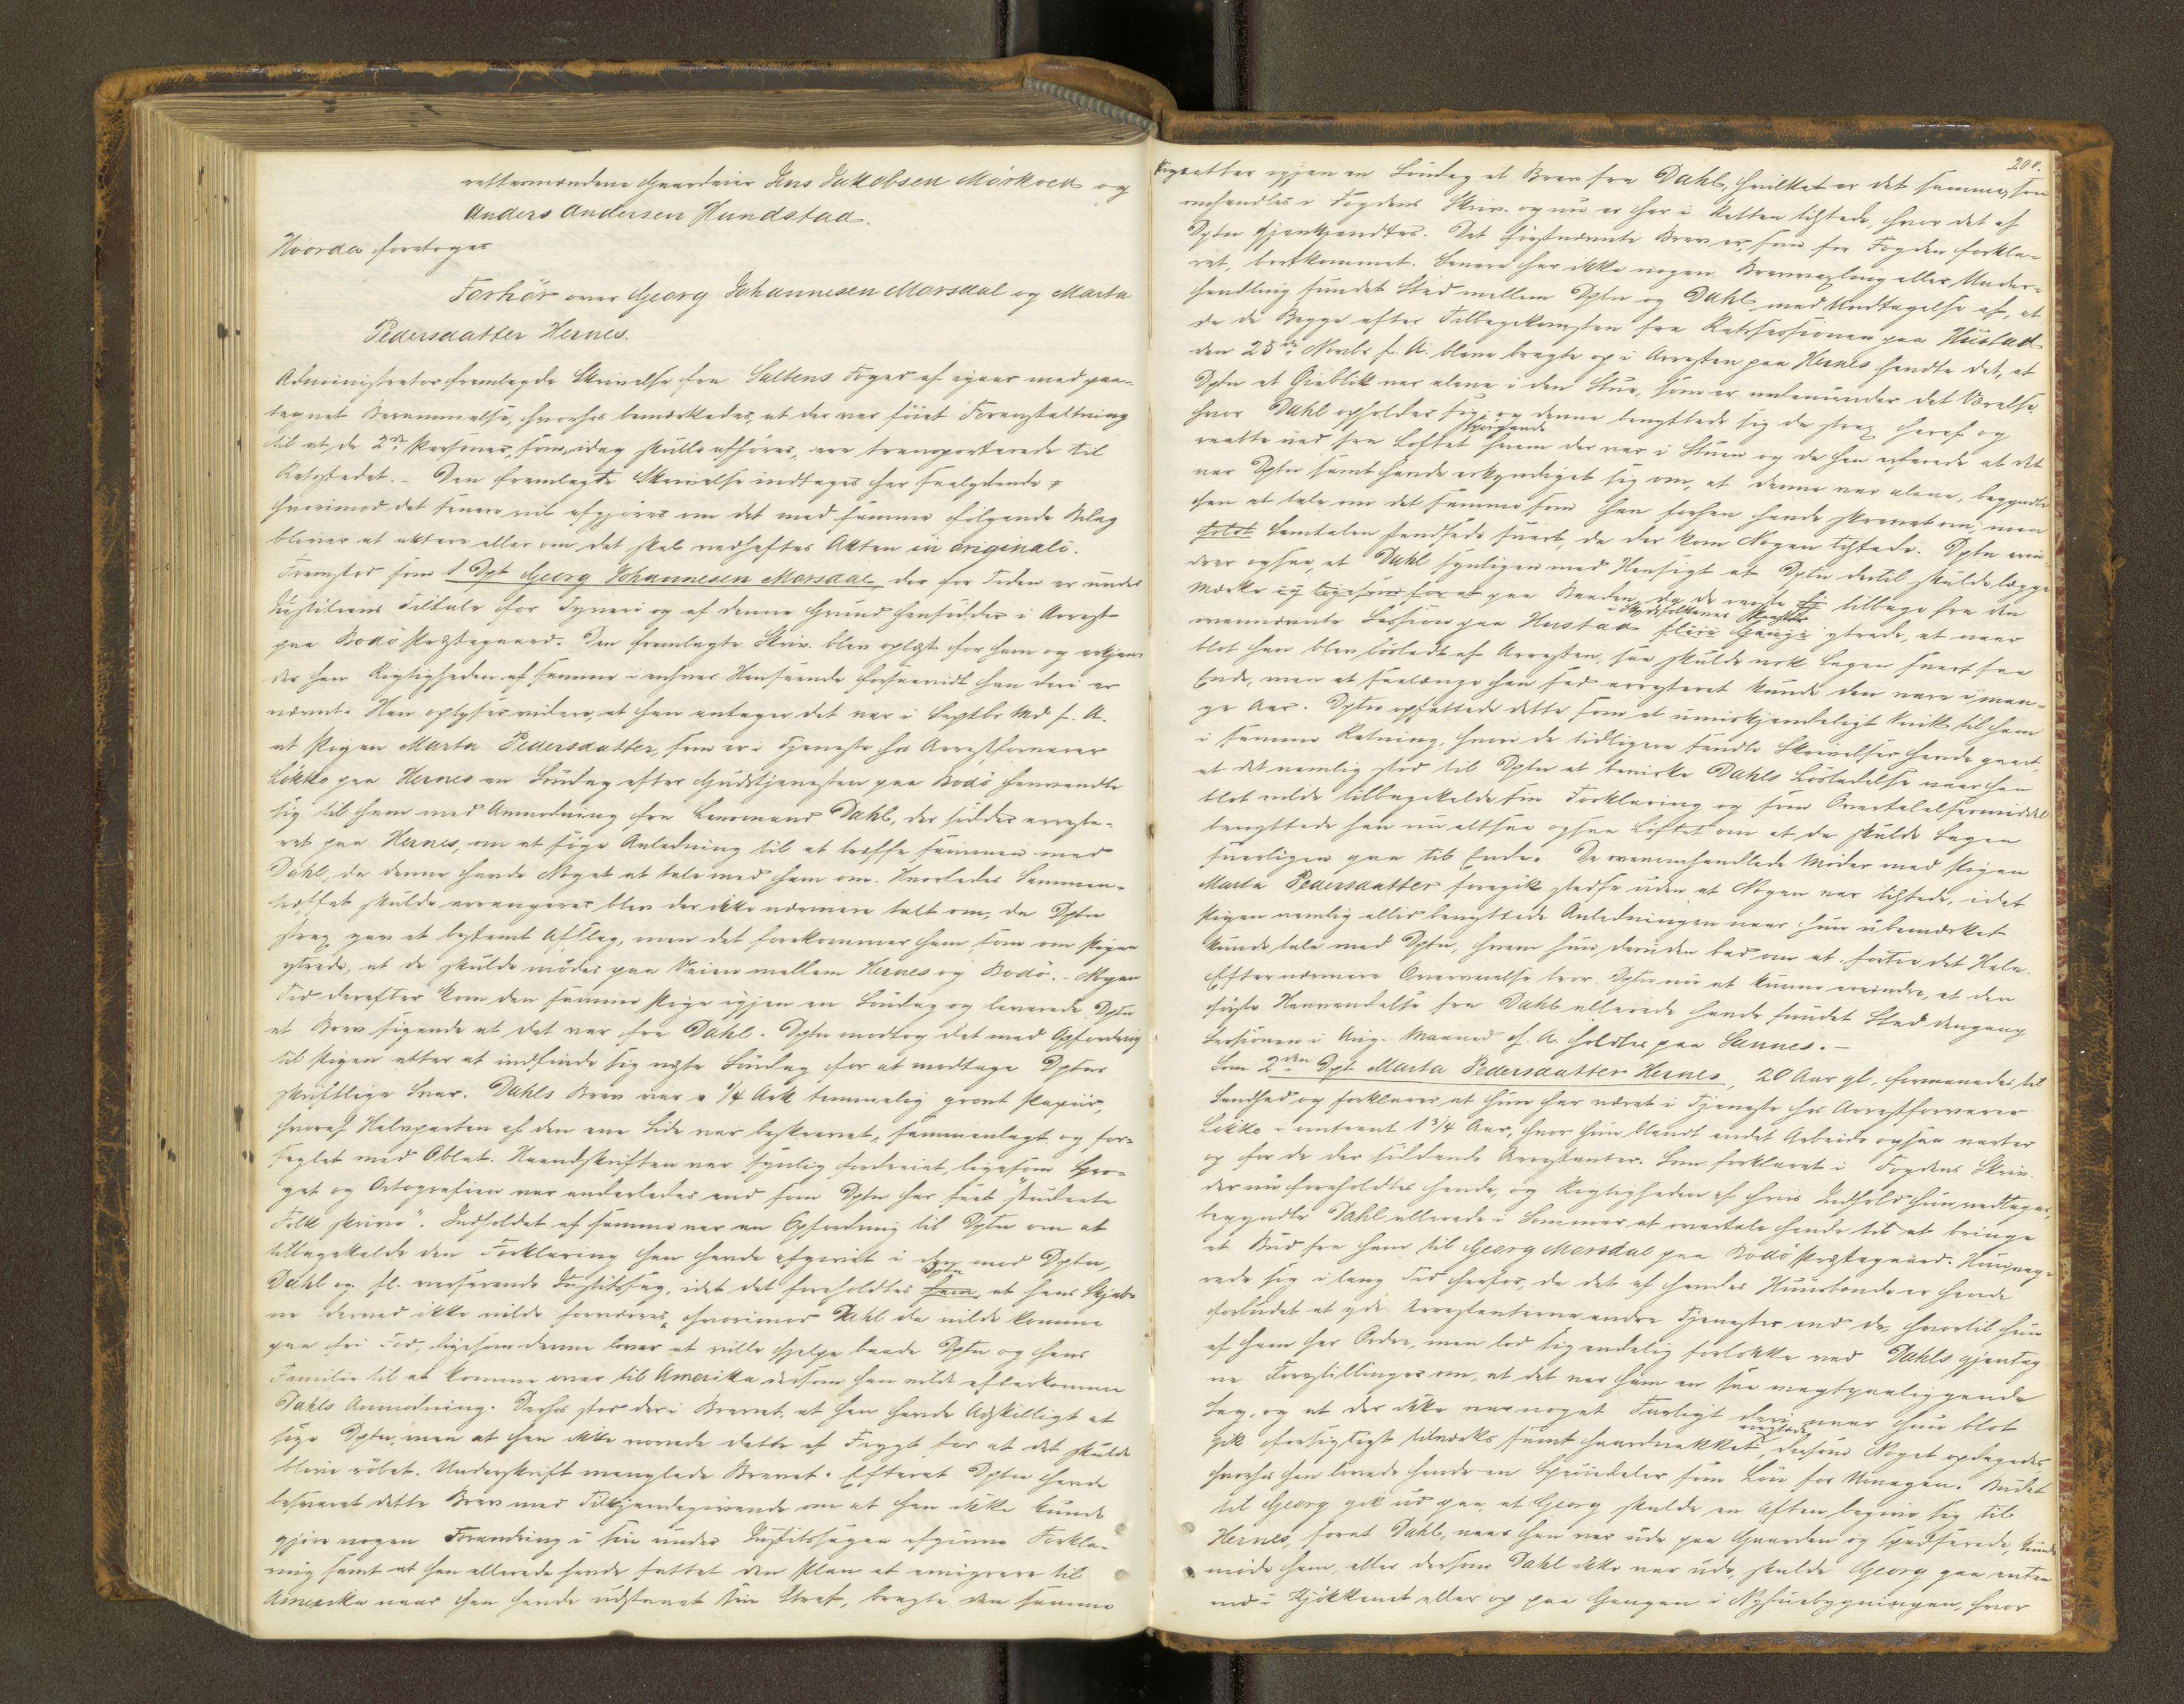 rettermændene Gaardeier Jens Jakobsen Mörkved og
Anders Andersen Hundstad.
Hvorda foretoges
Forhör over Georg Johannesen Marsdal og Marta
Pedersdatter Hernes.
Administrator fremlagde Skrivelse fra Saltens Foged af igaar med paa-
tegnet Berammelse, hvorhos bemærkedes, at der var föiet Foranstaltning
til at de 2de Personer, som idag skulle afhöres, ere transporterede til
Retsstedet. – Den fremlagte Skrivelse indtages her saalydende #
hvorimod det senere vil afgjöres om det med samme fölgende Bilag
bliver at aktere eller om det skal vedheftes Akten in originali.
Fremstod som 1 Dpt Georg Johannesen Marsdal, der for Tiden er under
Justitiens Tiltale for Tyveri og af denne Grund hensidder i Arrest
paa Bodö Præstegaard. Den fremlagte Skriv. blev oplæst for ham og erkjen-
der han Rigtigheden af samme i enhver Henseende forsaavidt han deri er
nævnt. Han oplyser videre, at han antager det var i Septbr Md f. A.
at Pigen Marta Pedersdatter, som er i Tjeneste hos Arrestforvarer
Løkke paa Hernes en Söndag efter Gudstjenesten paa Bodö henvendte
sig til ham med Anmodning fra Lensmand Dahl, der sidder arreste-
ret paa Hernes, om at söge Anledning til at træffe sammen med
Dahl, da denne havde Noget at tale med ham om. Hvorledes Sammen-
træffet skulde arrangeres blev der ikke nærmere talt om, da Dptn
strax gav et bestemt Afslag, men det forekommer ham som om Pigen
ytrede, at de skulde mödes paa Veien mellem Hernes og Bodö. – Nogen
Tid derefter kom den samme Pige igjen en Söndag og leverede Dptn
et Brev sigende at det var fra Dahl. Dptn modtog det med Opfordring
til Pigen atter at indfinde sig næste Söndag for at modtage Dptns
skriftlige Svar. Dahls Brev var 1/4 Ark temmelig grovt Papiir,
hvoraf Halvparten af den ene Side var beskrevet, sammenlagt og for-
seglet med Oblat. Haandskriften var synlig fordreiet, ligesom Spro-
get og Ortografien var anderledes end som Dptn har seet "studerte
Folk skrive". Indholdet af samme var en Opfordring til Dptn om at
tilbagekalde den Forklaring han havde afgivet i den mod Dptn,
Dahl og fl. verserende Justitssag, idet det foreholdtes ham Dptn, at hans Skjæb-
ne derved ikke vilde forværres, hvorimod Dahl da vilde komme
paa fri Fod, ligesom denne lover at ville hjelpe baade Dptn og hans
Familie til at komme over til Amerika dersom han vilde efterkomme
Dahls Anmodning. Derhos stod der i Brevet, at han havde Adskilligt at
sige Dptn, men at han ikke vovede dette af Frygt for at det skulde
blive röbet. Underskrift manglede Brevet. Efterat Dptn havde
besvaret dette Brev med Tilkjendegivende om at han ikke kunde
gjöre nogen Forandring i sin under Justitssagen afgivne Forkla-
ring samt at han allerede havde fattet den Plan at emigrere til
Amerika naar han havde udstaaet sin Straf, bragte den samme
208.
Pige atter igjen en Söndag et Brev fra Dahl, hvilket er det samme, som
omhandles i Fogdens Skriv. og nu er her i Retten tilstede, hvor det af
Dptn gjenkjendtes. Det förstnævnte Brev er, som for Fogden forkla-
ret, bortkommet. Senere har ikke nogen Brevvexling eller Under-
handling fundet Sted mellem Dptn og Dahl med Undtagelse af, at
da de Begge efter Tilbagekomsten fra Retssessionen paa Hustad
den 25de Novbr f. A. bleve bragte op i Arresten paa Hernes hændte det, at
Dptn et Öieblik var alene i den Stue, som er nedenunder det Værelse,
hvor Dahl opholder sig, og denne benyttede sig da strax heraf og
raabte ned fra Loftet spörgende hvem der var i Stuen og da han erfarede at det
var Dptn samt havde erkyndiget sig om, at denne var alene, begyndte
han at tale om det samme som han forhen havde skrevet om; men
Samtalen standsede snart, da der kom Nogen tilstede. Dptn erin-
drer ogsaa, at Dahl synligen med Hensigt at Dptn dertil skulde lægge
Mærke paa Baaden, da de reiste tilbage fra den
ovennævnte Session paa Hustad i Skydsfolkenes ytrede, at naar
blot han blev lösladt af Arresten, saa skulde nok Sagen snart faa
Ende, men at saalænge han sad arresteret kunde den vare i man-
ge Aar. Dptn opfattede dette som et umiskjendeligt Vink til ham
i samme Retning, hvori de tidligere sendte Skrivelser havde gaaet,
at det nemlig stod til Dptn at bevirke Dahls Lösladelse naar han
blot vilde tilbagekalde sin Forklaring og som Overtalelsesmiddel
benyttede han nu altsaa ogsaa Löftet om at da skulde Sagen
snarligen gaa til Ende. De ovenomhandlede Möder med Pigen
Marta Pedersdatter foregik stedse uden at Nogen var tilstede, idet
Pigen nemlig altid benyttede Anledningen naar hun ubemærket
kunde tale med Dptn, hvem hun desuden bad om at fortie det Hele.
Efter nærmere Overveielse tror Dptn nu at kunne erindre, at den
förste Henvendelse fra Dahl allerede havde fundet Sted dengang
Sessionen i Aug. Maaned f. A. holdtes paa Sannes. –
Som 2den Dpt Marta Pedersdatter Hernes, 20 Aar gl, formanedes til
Sandhed og forklarer, at hun har været i Tjeneste hos Arrestforvarer
Lökke i omtrent 1 3/4 Aar, hvor hun blandt andet Arbeide ogsaa varter
op for de der siddende Arrestanter. Som forklaret i Fogdens Skriv.
der nu foreholdtes hende, og Rigtigheden af hvis Indhold hun vedtager,
begyndte Dahl allerede i Sommer at overtale hende til at bringe
et Bud fra ham til Georg Marsdal paa Bodö Præstegaard. Hun væg-
rede sig i lang Tid herfor, da det af hendes Huusbonde er hende
forbudet at yde Arrestanterne andre Tjenester end de, hvortil hun
af ham har Ordre, men lod sig endelig forlokke ved Dahls gjentag-
ne Forestillinger om, at det var ham en saa magtpaaliggende
Sag, og at der ikke var noget Farligt deri naar hun blot
gik forsigtigt tilværks samt haardnakket nægtede, dersom Noget opdagedes
hvorhos han lovede hende en Speciedaler som Lön for Umagen. Budet
til Georg gik ud paa, at Georg skulde en Aften begive sig til
Hernes, forat Dahl, naar han var ude paa Gaarden og spadserede, kunde
möde ham, eller dersom Dahl ikke var ude, skulde Georg gaa enten
ind i Kjökkenet eller op paa Gangen i Nystuebygningen, hvor